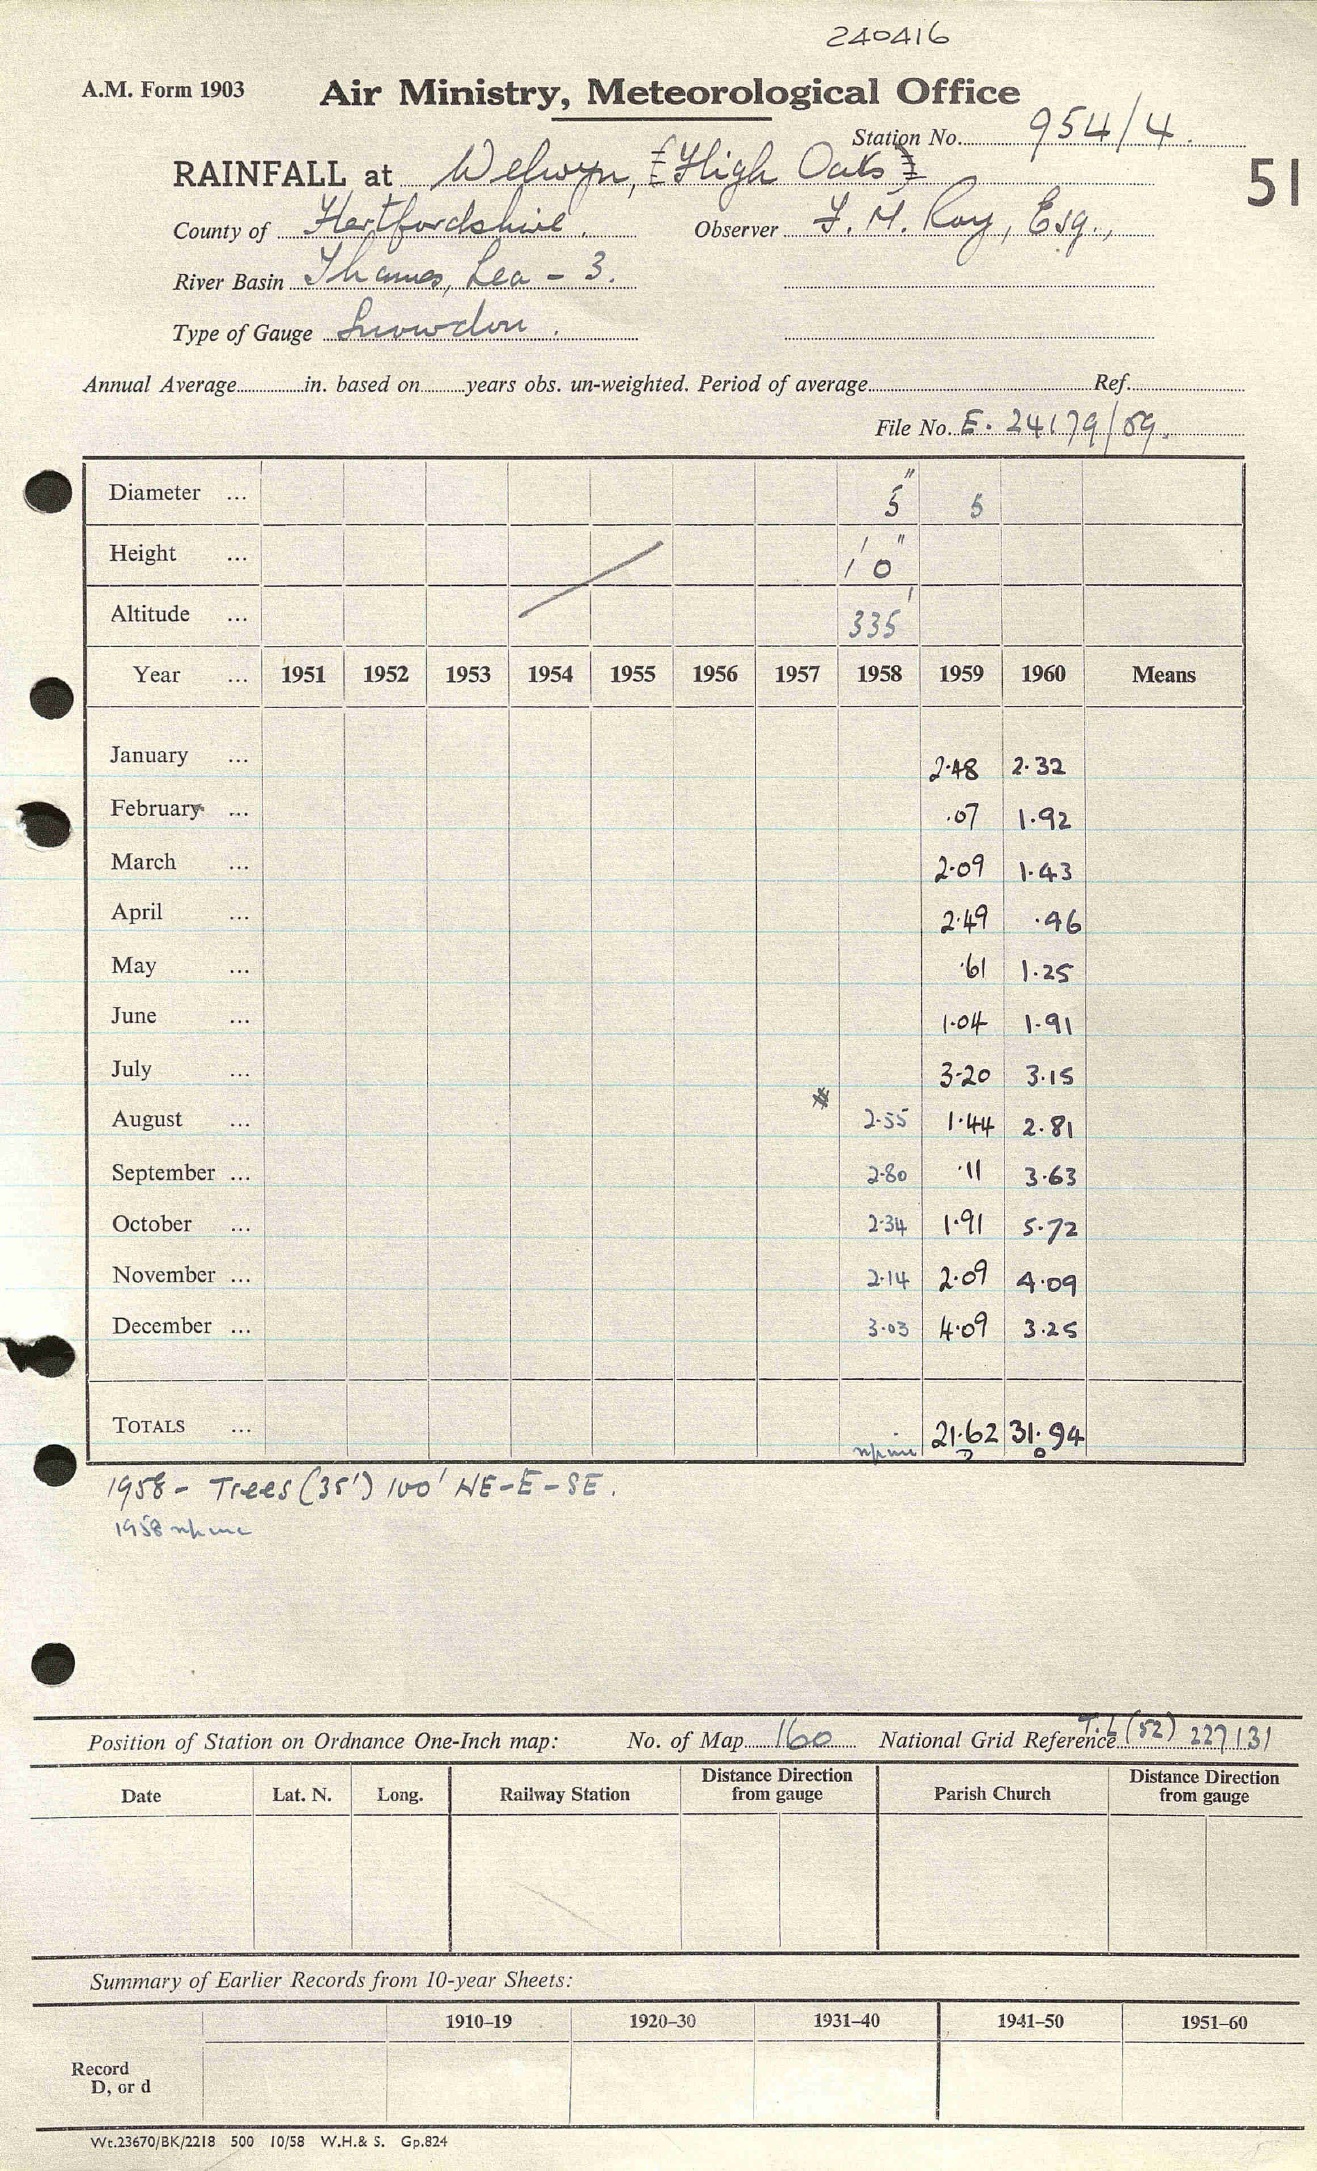 240416
A.M. Form 1903 Air Ministry, Meteorological Office
Station No. 954/4.
RAINFALL at Welwyn, [High Oaks]
51
County of Hertfordshire. Observer F. M. Roy, Esq.,
River Basin Thames, Lea - 3.
Type of Gauge Snowdon.
Annual Average in. based on years obs. un-weighted. Period of average Ref.
File No. E. 24179/59.
Diameter ... 5" 5
Height ... 1' 0"
Altitude ... 335'
Year ... 1951 1952 1953 1954 1955 1956 1957 1958 1959 1960 Means
January ... 2.48 2.32
February ... .07 1.92
March ... 2.09 1.43
April ... 2.49 .46
May ... .61 1.25
June ... 1.04 1.91
July ... 3.20 3.15
August ... 2.55 1.44 2.81
September ... 2.80 .11 3.63
October ... 2.34 1.91 5.72
November ... 2.14 2.09 4.09
December ... 3.03 4.09 3.25
TOTALS ... 21.62 31.94
1958 - Trees (35') 100' NE-E-SE.
1958
Position of Station on Ordnance One-Inch map: No. of Map 160 National Grid Reference T.L (52) 227131
Date Lat. N. Long. Railway Station Distance Direction from gauge Parish Church Distance Direction from gauge
Summary of Earlier Records from 10-year Sheets:
1910–19 1920–30 1931–40 1941–50 1951–60
Record
D, or d
Wt.23670/BK/2218 500 10/58 W.H.& S. Gp.824